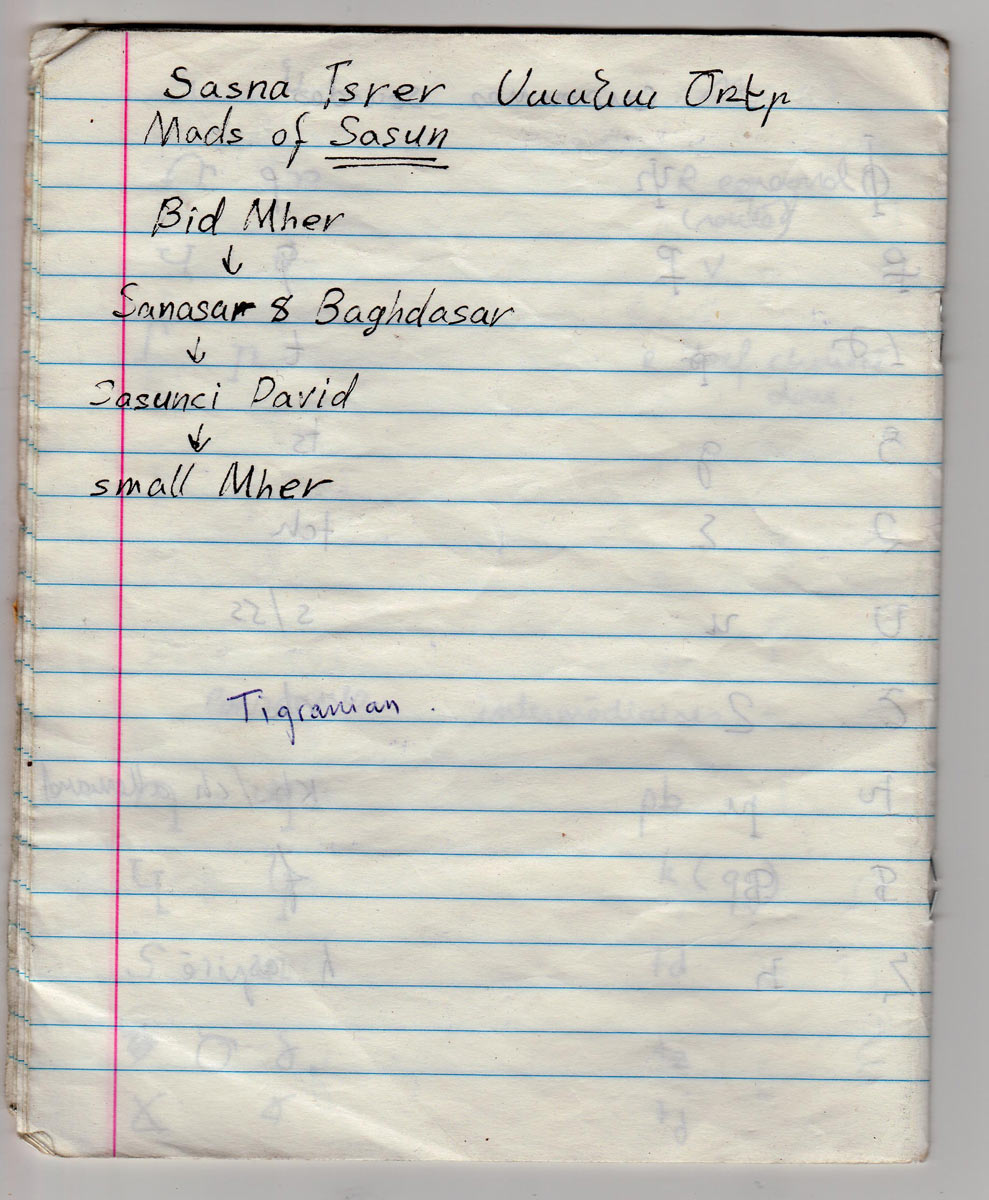 Sasna Tsrer Սասնա Ծռէր
Mads of Sasun
Bid Mher
↓
Sanasar & Baghdasar
↓
Sasunci David
↓
small Mher
Tigranian .